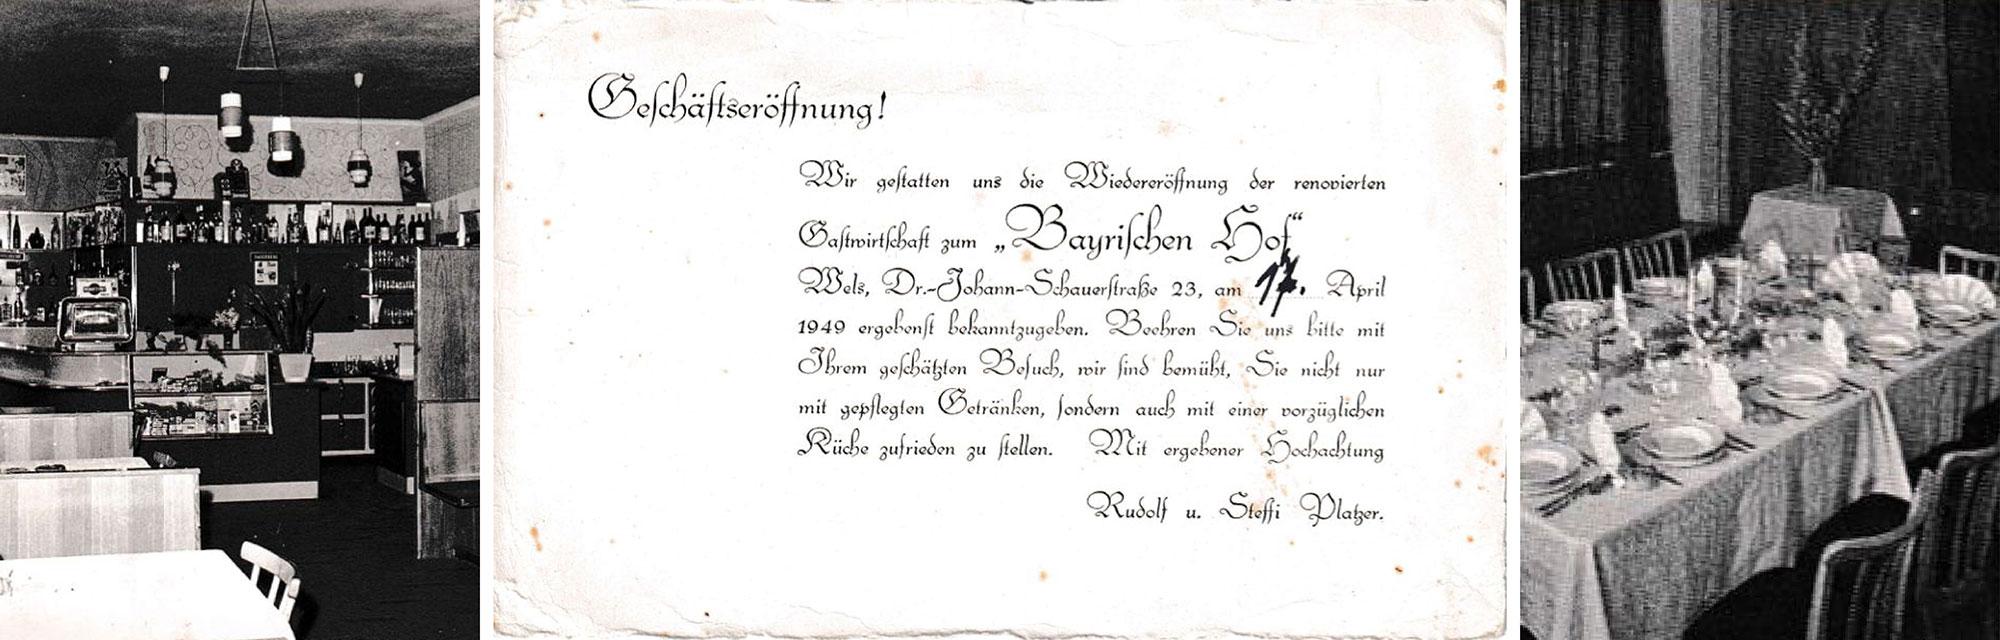 Geschäftseröffnung!
Wir gestatten uns die Wiedereröffnung der renovierten
Gastwirtschaft zum „Bayrischen Hof“
Wels, Dr.-Johann-Schauerstraße 23, am 17. April
1949 ergebenst bekanntzugeben. Beehren Sie uns bitte mit
Ihrem geschätzten Besuch, wir sind bemüht, Sie nicht nur
mit gepflegten Getränken, sondern auch mit einer vorzüglichen
Küche zufrieden zu stellen. Mit ergebener Hochachtung
Rudolf u. Steffi Platzer.